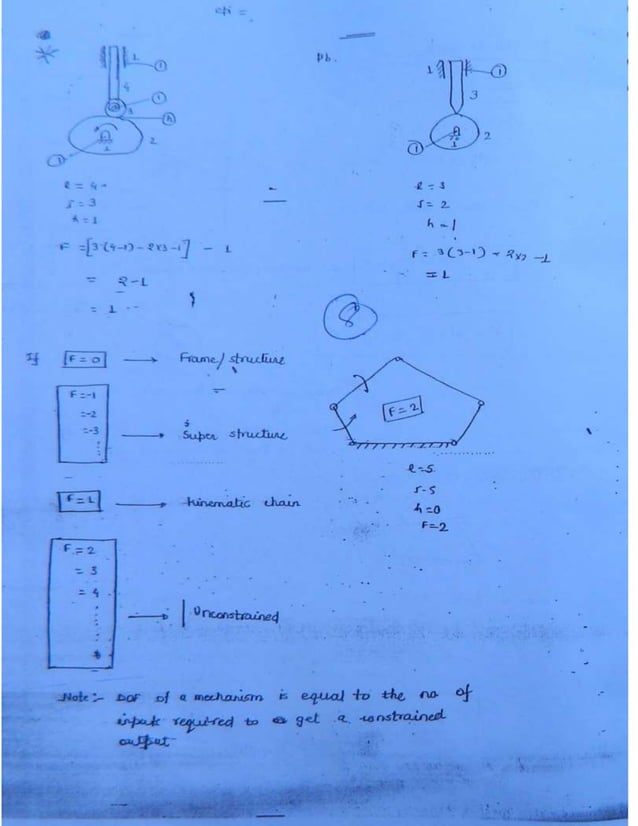 φ =
*
1
1
4
1
3
h
2
1
1
l = 4
j = 3
h = 1
F = [3(4-1) - 2×3 - 1] - 1
= 2-1
= 1
Pb.
1
1
3
2
1
1
l = 3
j = 2
h = 1
F = 3(3-1) - 2×2 - 1
= 1
8
If F = 0 → Frame/structure
F = -1
= -2
= -3
→ Super structure
F = 1 → kinematic chain
F = 2
= 3
= 4
→ Unconstrained
F = 2
l = 5
j = 5
h = 0
F = 2
Note :- DOF of a mechanism is equal to the no of
inputs required to get a constrained
output